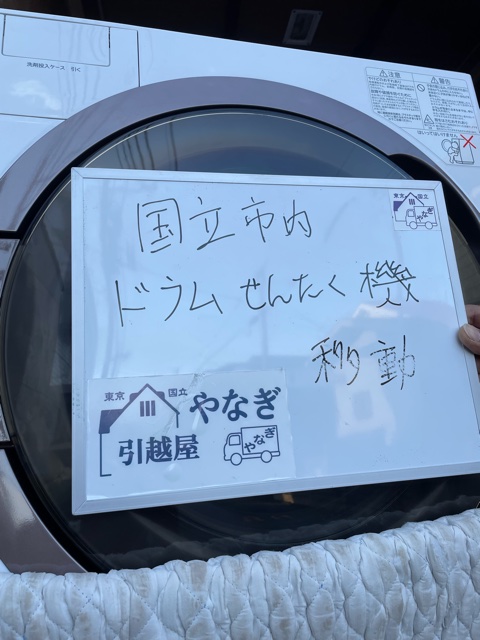 洗剤投入ケース 引く
注意
警告
東京 国立
やなぎ
国立市内
ドラム せんたく 機
移動
東京 国立
やなぎ
引越屋
やなぎ